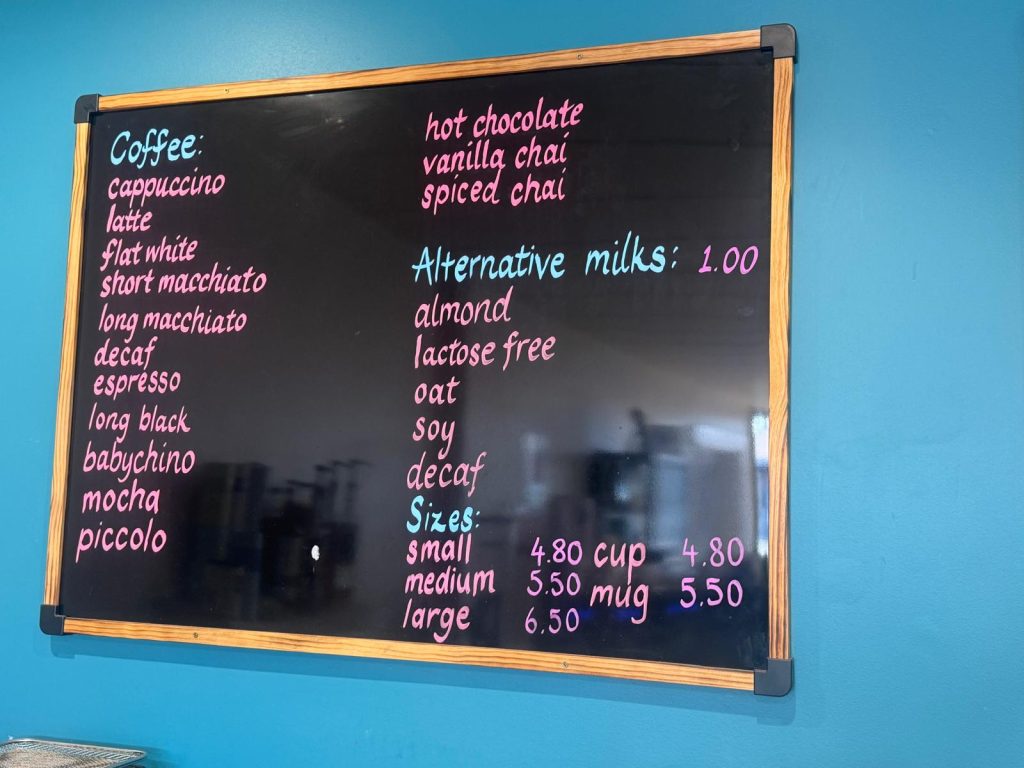 Coffee:
cappuccino
latte
flat white
short macchiato
long macchiato
decaf
espresso
long black
babychino
mocha
piccolo
hot chocolate
vanilla chai
spiced chai
Alternative milks: 1.00
almond
lactose free
oat
soy
decaf
Sizes:
small 4.80 cup 4.80
medium 5.50 mug 5.50
large 6.50